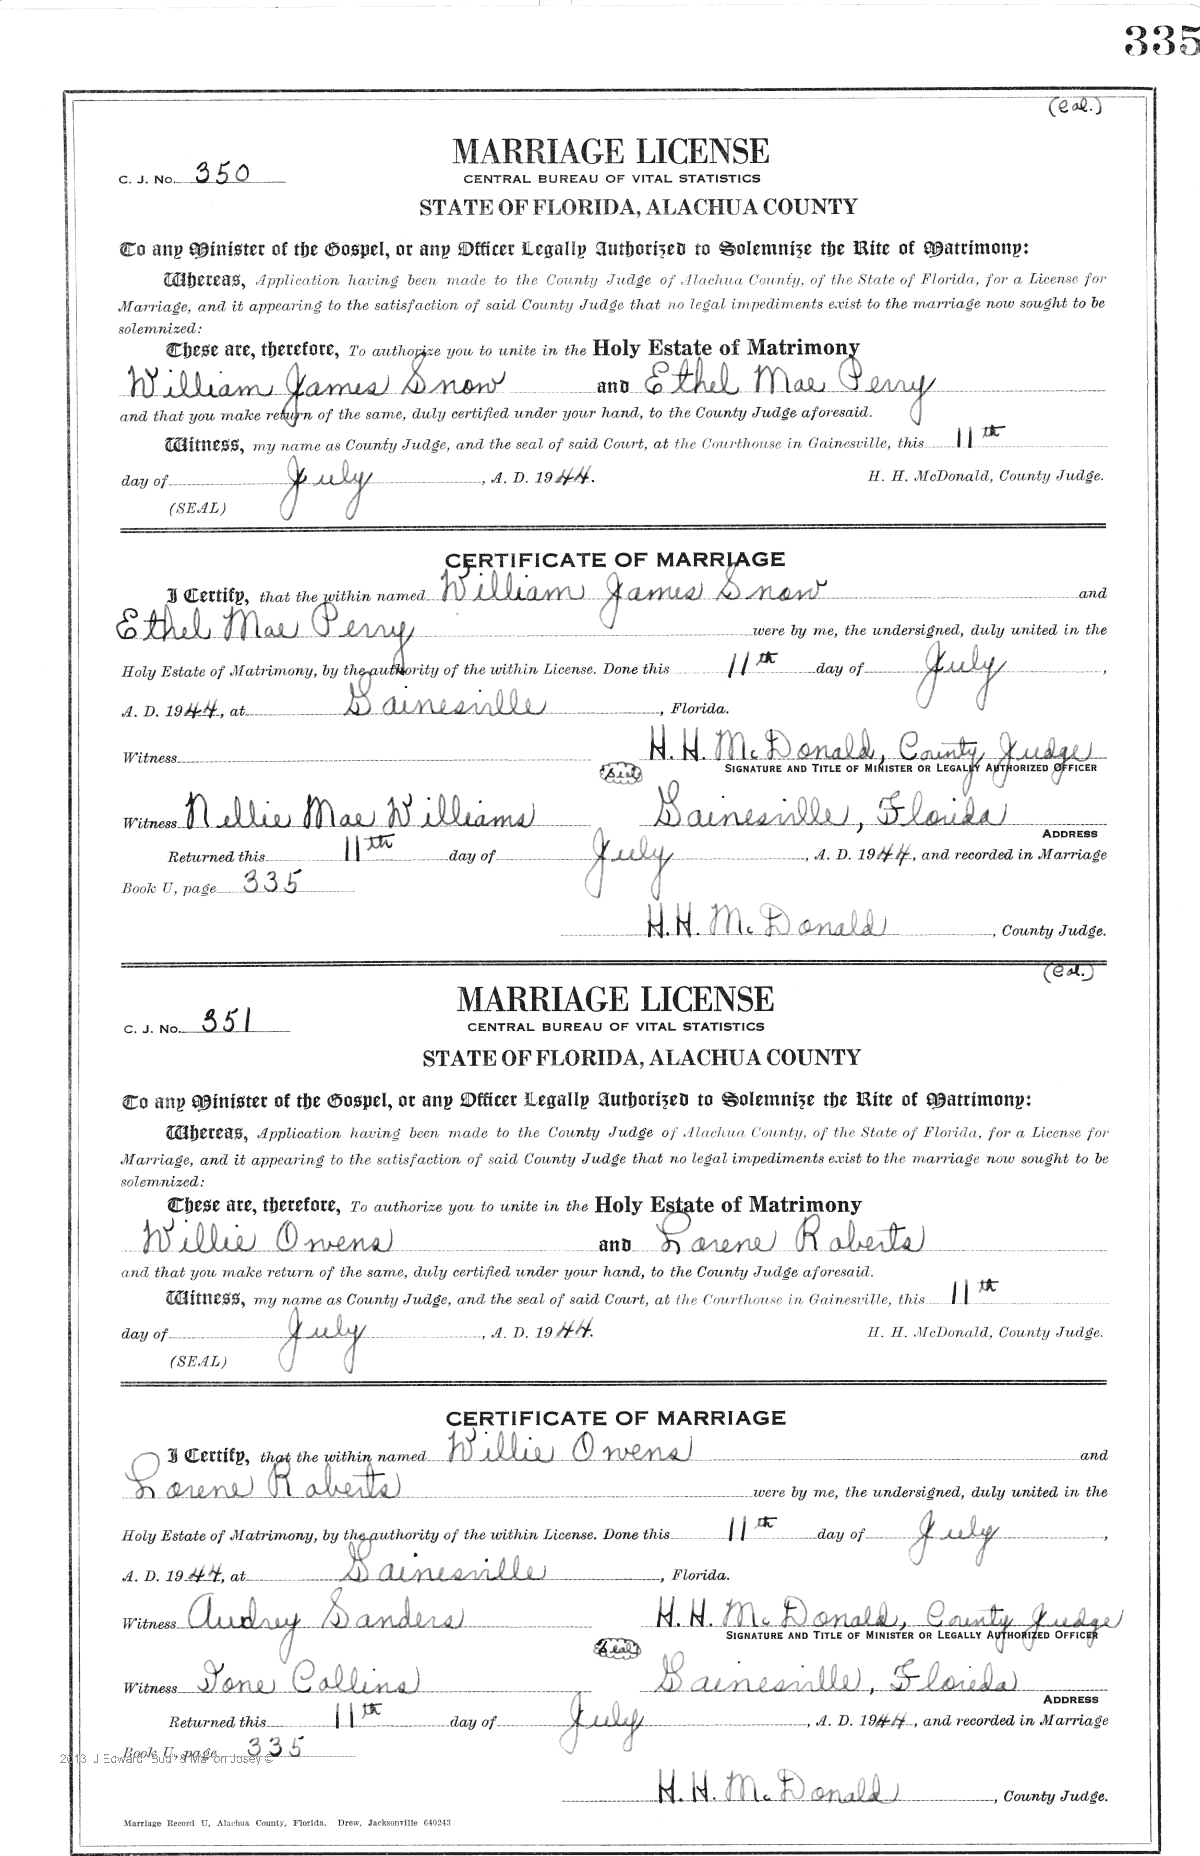 335
(Col.)
MARRIAGE LICENSE
C. J. No. 350
CENTRAL BUREAU OF VITAL STATISTICS
STATE OF FLORIDA, ALACHUA COUNTY
To any Minister of the Gospel, or any Officer Legally Authorized to Solemnize the Rite of Matrimony:
Whereas, Application having been made to the County Judge of Alachua County, of the State of Florida, for a License for
Marriage, and it appearing to the satisfaction of said County Judge that no legal impediments exist to the marriage now sought to be
solemnized:
These are, therefore, To authorize you to unite in the Holy Estate of Matrimony
William James Snow and Ethel Mae Perry
and that you make return of the same, duly certified under your hand, to the County Judge aforesaid.
Witness, my name as County Judge, and the seal of said Court, at the Courthouse in Gainesville, this 11th
day of July, A. D. 1944. H. H. McDonald, County Judge.
(SEAL)
CERTIFICATE OF MARRIAGE
I Certify, that the within named William James Snow and
Ethel Mae Perry were by me, the undersigned, duly united in the
Holy Estate of Matrimony, by the authority of the within License. Done this 11th day of July,
A. D. 1944, at Gainesville, Florida.
Witness H. H. McDonald, County Judge
Seal SIGNATURE AND TITLE OF MINISTER OR LEGALLY AUTHORIZED OFFICER
Witness Nellie Mae Williams Gainesville, Florida
ADDRESS
Returned this 11th day of July, A. D. 1944, and recorded in Marriage
Book U, page 335
H. H. McDonald, County Judge.
(Col.)
MARRIAGE LICENSE
C. J. No. 351
CENTRAL BUREAU OF VITAL STATISTICS
STATE OF FLORIDA, ALACHUA COUNTY
To any Minister of the Gospel, or any Officer Legally Authorized to Solemnize the Rite of Matrimony:
Whereas, Application having been made to the County Judge of Alachua County, of the State of Florida, for a License for
Marriage, and it appearing to the satisfaction of said County Judge that no legal impediments exist to the marriage now sought to be
solemnized:
These are, therefore, To authorize you to unite in the Holy Estate of Matrimony
Willie Owens and Lorene Roberts
and that you make return of the same, duly certified under your hand, to the County Judge aforesaid.
Witness, my name as County Judge, and the seal of said Court, at the Courthouse in Gainesville, this 11th
day of July, A. D. 1944. H. H. McDonald, County Judge.
(SEAL)
CERTIFICATE OF MARRIAGE
I Certify, that the within named Willie Owens and
Lorene Roberts were by me, the undersigned, duly united in the
Holy Estate of Matrimony, by the authority of the within License. Done this 11th day of July,
A. D. 1944, at Gainesville, Florida.
Witness Audrey Sanders H. H. McDonald, County Judge
Seal SIGNATURE AND TITLE OF MINISTER OR LEGALLY AUTHORIZED OFFICER
Witness Ione Collins Gainesville, Florida
ADDRESS
Returned this 11th day of July, A. D. 1944, and recorded in Marriage
Book U, page 335
2013 J Edward
Josey ©
H. H. McDonald, County Judge.
Marriage Record U, Alachua County, Florida. Drew, Jacksonville 640243